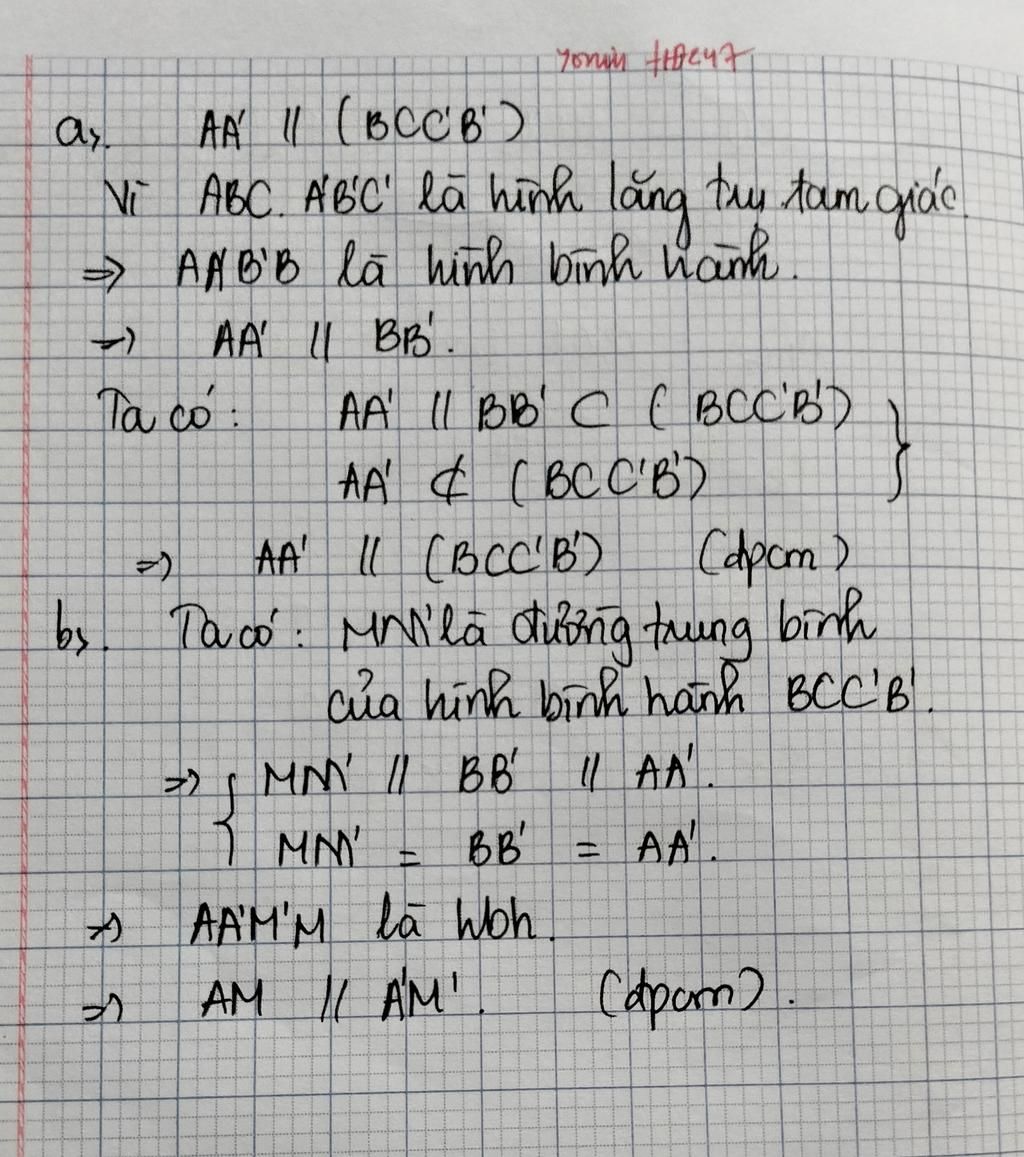 a,. AA' // (BCC'B')
Vì ABC. A'B'C' là hình lăng trụ tam giác.
=> AA'B'B là hình bình hành.
=> AA' // BB'.
Ta có: AA' // BB' ⊂ (BCC'B') }
AA' ⊄ (BCC'B')
=> AA' // (BCC'B') (đpcm)
b,. Ta có: MM' là đường trung bình
của hình bình hành BCC'B'.
=> { MM' // BB' // AA'.
MM' = BB' = AA'.
=> AA'M'M là hbh.
=> AM // A'M'. (đpcm).